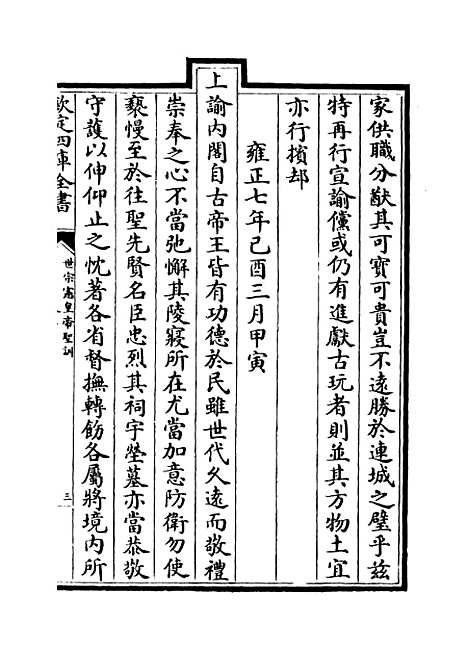 家供職分猷其可寶可貴豈不遠勝於連城之璧乎兹
特再行宣諭儻或仍有進獻古玩者則並其方物土宜
亦行擯却
雍正七年己酉三月甲寅
上諭内閣自古帝王皆有功德於民雖世代久遠而敬禮
崇奉之心不當弛懈其陵寢所在尤當加意防衛勿使
褻慢至於往聖先賢名臣忠烈其祠宇塋墓亦當恭敬
守護以伸仰止之忱著各省督撫轉飭各屬將境内所
欽定四庫全書
世宗憲皇帝聖訓
三